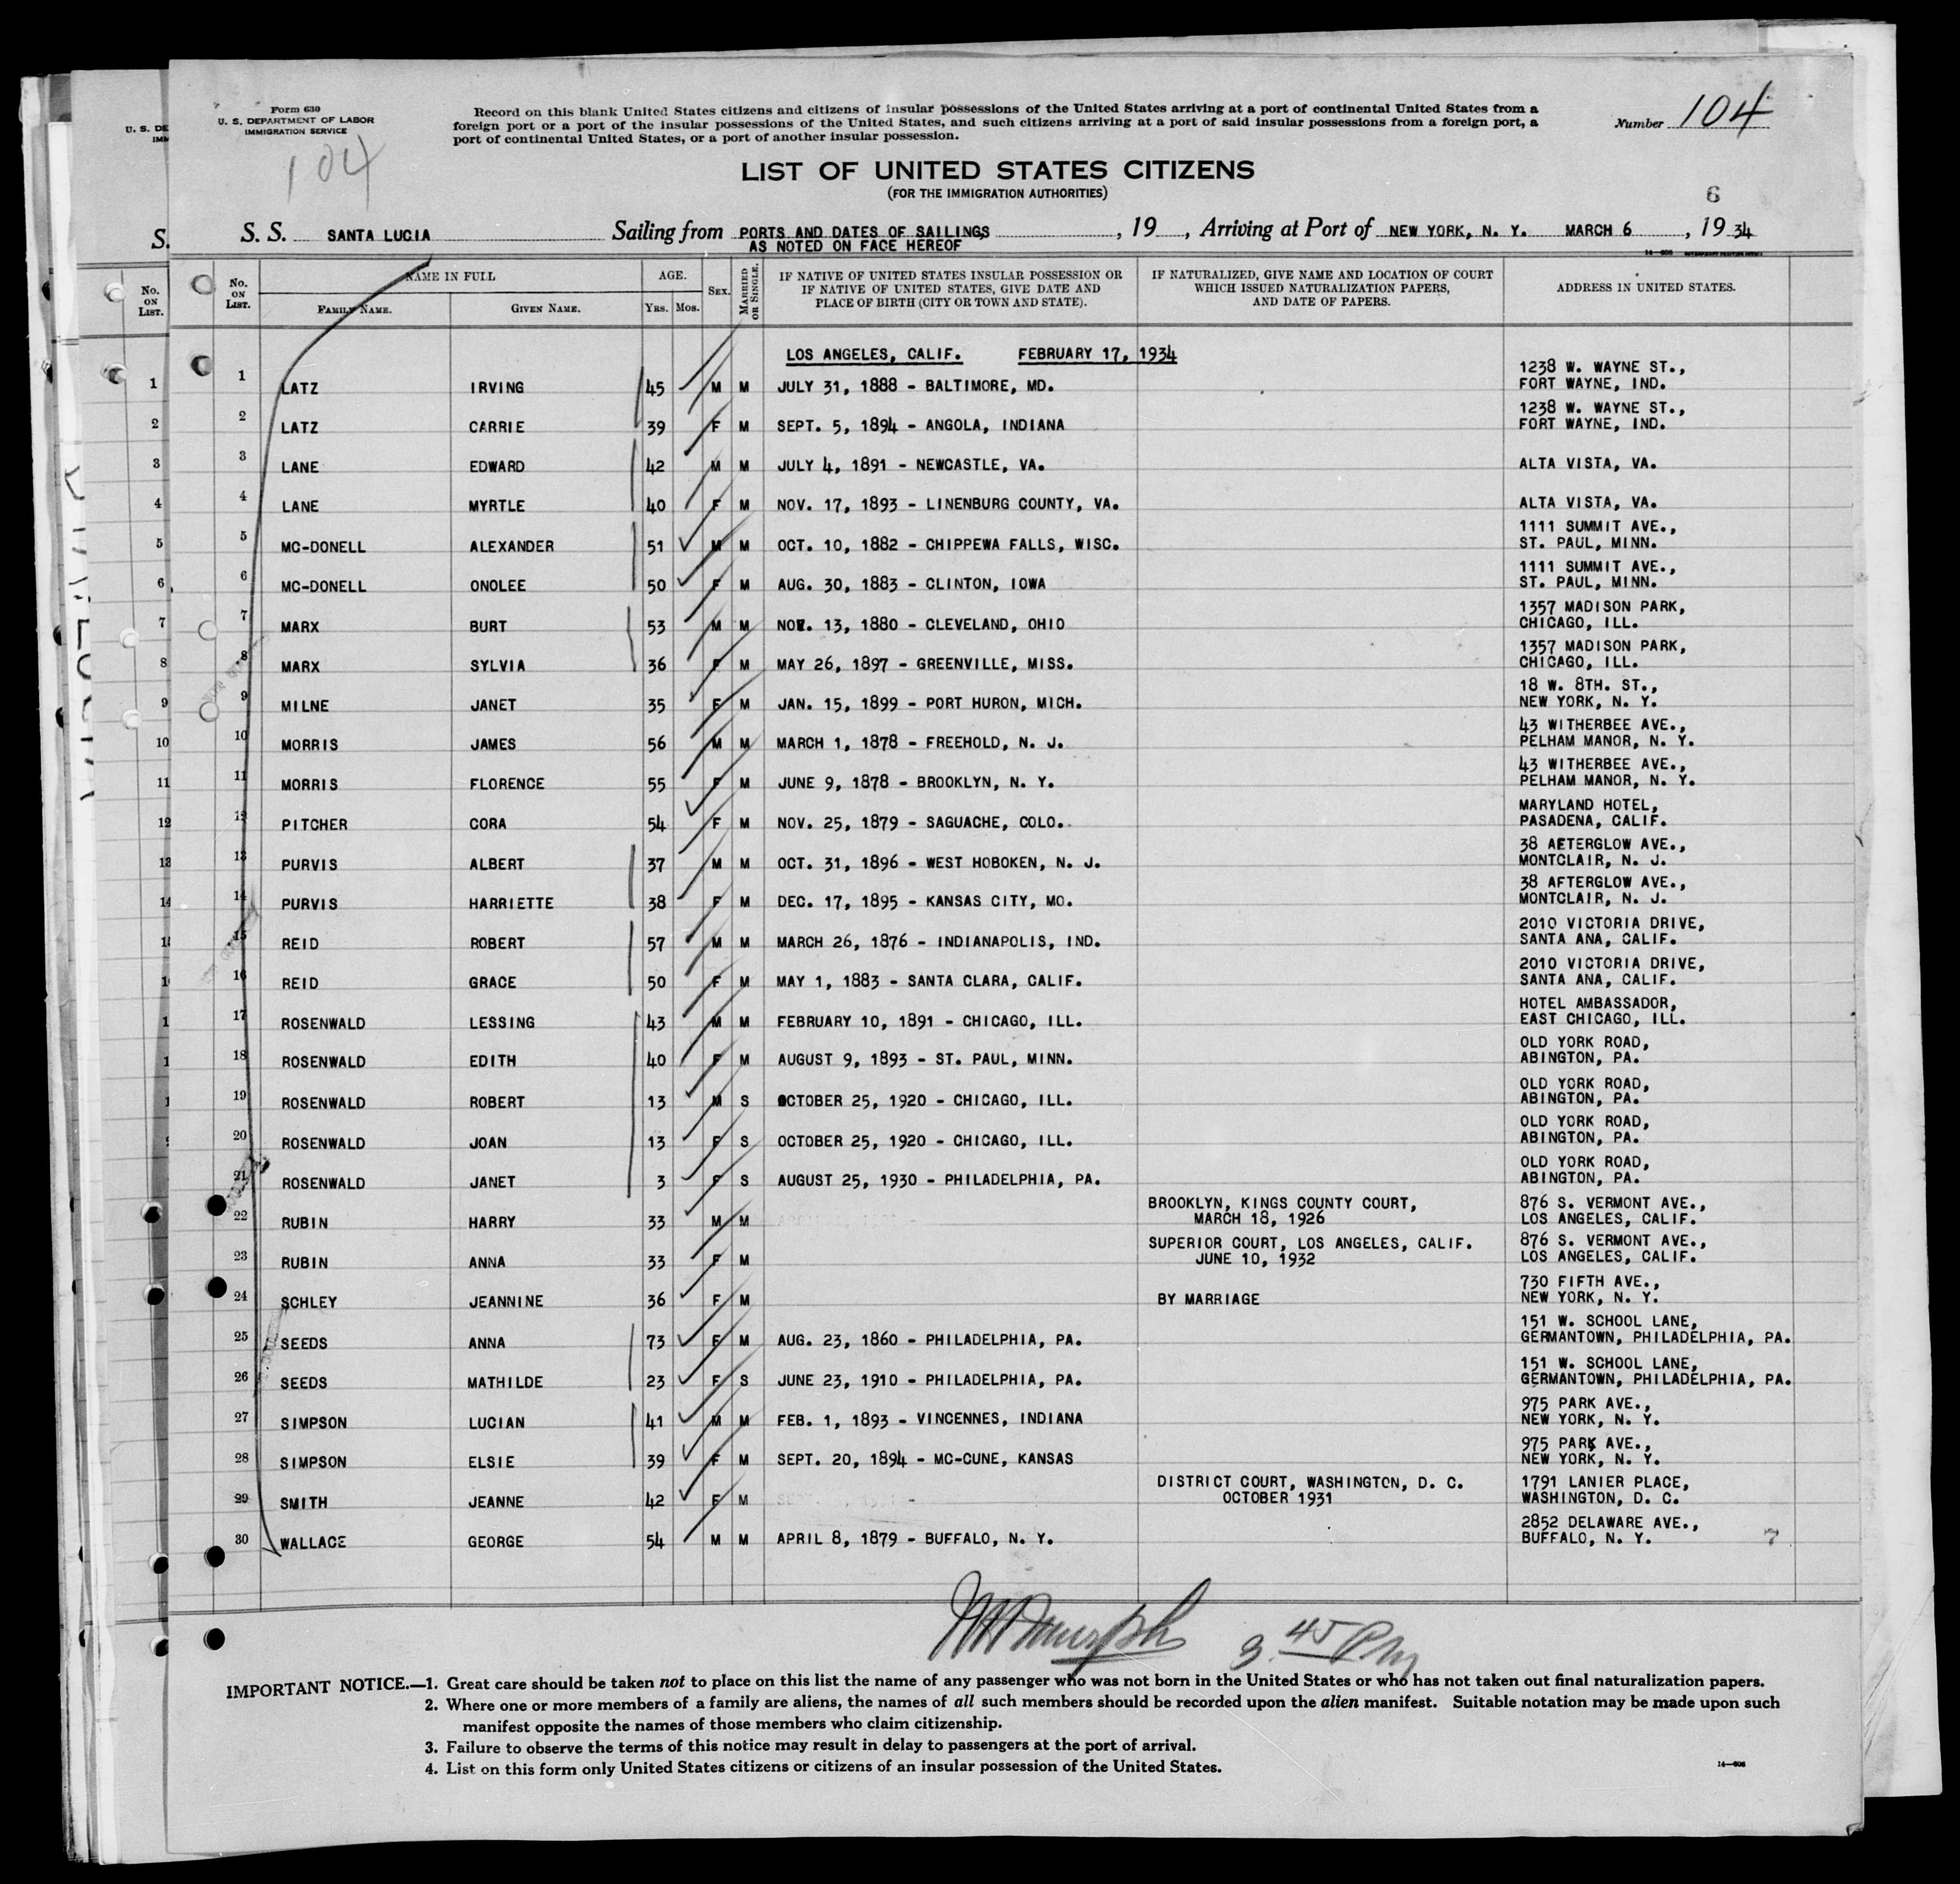 Form 630
U. S. DEPARTMENT OF LABOR
IMMIGRATION SERVICE
104
Record on this blank United States citizens and citizens of insular possessions of the United States arriving at a port of continental United States from a
foreign port or a port of the insular possessions of the United States, and such citizens arriving at a port of said insular possessions from a foreign port, a
port of continental United States, or a port of another insular possession.
Number 104
LIST OF UNITED STATES CITIZENS
(FOR THE IMMIGRATION AUTHORITIES)
6
S. S. SANTA LUCIA Sailing from PORTS AND DATES OF SAILINGS , 19 , Arriving at Port of NEW YORK, N. Y. MARCH 6 , 19 34
AS NOTED ON FACE HEREOF
No. ON LIST. NAME IN FULL FAMILY NAME. GIVEN NAME. AGE. YRS. MOS. SEX. MARRIED OR SINGLE. IF NATIVE OF UNITED STATES INSULAR POSSESSION OR IF NATIVE OF UNITED STATES, GIVE DATE AND PLACE OF BIRTH (CITY OR TOWN AND STATE). IF NATURALIZED, GIVE NAME AND LOCATION OF COURT WHICH ISSUED NATURALIZATION PAPERS, AND DATE OF PAPERS. ADDRESS IN UNITED STATES.
LOS ANGELES, CALIF. FEBRUARY 17, 1934
1 LATZ IRVING 45 M M JULY 31, 1888 - BALTIMORE, MD. 1238 W. WAYNE ST., FORT WAYNE, IND.
2 LATZ CARRIE 39 F M SEPT. 5, 1894 - ANGOLA, INDIANA 1238 W. WAYNE ST., FORT WAYNE, IND.
3 LANE EDWARD 42 M M JULY 4, 1891 - NEWCASTLE, VA. ALTA VISTA, VA.
4 LANE MYRTLE 40 F M NOV. 17, 1893 - LINENBURG COUNTY, VA. ALTA VISTA, VA.
5 MC-DONELL ALEXANDER 51 M M OCT. 10, 1882 - CHIPPEWA FALLS, WISC. 1111 SUMMIT AVE., ST. PAUL, MINN.
6 MC-DONELL ONOLEE 50 F M AUG. 30, 1883 - CLINTON, IOWA 1111 SUMMIT AVE., ST. PAUL, MINN.
7 MARX BURT 53 M M NOV. 13, 1880 - CLEVELAND, OHIO 1357 MADISON PARK, CHICAGO, ILL.
8 MARX SYLVIA 36 F M MAY 26, 1897 - GREENVILLE, MISS. 1357 MADISON PARK, CHICAGO, ILL.
9 MILNE JANET 35 F M JAN. 15, 1899 - PORT HURON, MICH. 18 W. 8TH. ST., NEW YORK, N. Y.
10 MORRIS JAMES 56 M M MARCH 1, 1878 - FREEHOLD, N. J. 43 WITHERBEE AVE., PELHAM MANOR, N. Y.
11 MORRIS FLORENCE 55 F M JUNE 9, 1878 - BROOKLYN, N. Y. 43 WITHERBEE AVE., PELHAM MANOR, N. Y.
12 PITCHER CORA 54 F M NOV. 25, 1879 - SAGUACHE, COLO. MARYLAND HOTEL, PASADENA, CALIF.
13 PURVIS ALBERT 37 M M OCT. 31, 1896 - WEST HOBOKEN, N. J. 38 AFTERGLOW AVE., MONTCLAIR, N. J.
14 PURVIS HARRIETTE 38 F M DEC. 17, 1895 - KANSAS CITY, MO. 38 AFTERGLOW AVE., MONTCLAIR, N. J.
15 REID ROBERT 57 M M MARCH 26, 1876 - INDIANAPOLIS, IND. 2010 VICTORIA DRIVE, SANTA ANA, CALIF.
16 REID GRACE 50 F M MAY 1, 1883 - SANTA CLARA, CALIF. 2010 VICTORIA DRIVE, SANTA ANA, CALIF.
17 ROSENWALD LESSING 43 M M FEBRUARY 10, 1891 - CHICAGO, ILL. HOTEL AMBASSADOR, EAST CHICAGO, ILL.
18 ROSENWALD EDITH 40 F M AUGUST 9, 1893 - ST. PAUL, MINN. OLD YORK ROAD, ABINGTON, PA.
19 ROSENWALD ROBERT 13 M S OCTOBER 25, 1920 - CHICAGO, ILL. OLD YORK ROAD, ABINGTON, PA.
20 ROSENWALD JOAN 13 F S OCTOBER 25, 1920 - CHICAGO, ILL. OLD YORK ROAD, ABINGTON, PA.
21 ROSENWALD JANET 3 F S AUGUST 25, 1930 - PHILADELPHIA, PA. OLD YORK ROAD, ABINGTON, PA.
22 RUBIN HARRY 33 M M BROOKLYN, KINGS COUNTY COURT, MARCH 18, 1926 876 S. VERMONT AVE., LOS ANGELES, CALIF.
23 RUBIN ANNA 33 F M SUPERIOR COURT, LOS ANGELES, CALIF. JUNE 10, 1932 876 S. VERMONT AVE., LOS ANGELES, CALIF.
24 SCHLEY JEANNINE 36 F M BY MARRIAGE 730 FIFTH AVE., NEW YORK, N. Y.
25 SEEDS ANNA 73 F M AUG. 23, 1860 - PHILADELPHIA, PA. 151 W. SCHOOL LANE, GERMANTOWN, PHILADELPHIA, PA.
26 SEEDS MATHILDE 23 F S JUNE 23, 1910 - PHILADELPHIA, PA. 151 W. SCHOOL LANE, GERMANTOWN, PHILADELPHIA, PA.
27 SIMPSON LUCIAN 41 M M FEB. 1, 1893 - VINCENNES, INDIANA 975 PARK AVE., NEW YORK, N. Y.
28 SIMPSON ELSIE 39 F M SEPT. 20, 1894 - MC-CUNE, KANSAS 975 PARK AVE., NEW YORK, N. Y.
29 SMITH JEANNE 42 F M DISTRICT COURT, WASHINGTON, D. C. OCTOBER 1931 1791 LANIER PLACE, WASHINGTON, D. C.
30 WALLACE GEORGE 54 M M APRIL 8, 1879 - BUFFALO, N. Y. 2852 DELAWARE AVE., BUFFALO, N. Y. 7
3 45 PM
IMPORTANT NOTICE.—1. Great care should be taken not to place on this list the name of any passenger who was not born in the United States or who has not taken out final naturalization papers.
2. Where one or more members of a family are aliens, the names of all such members should be recorded upon the alien manifest. Suitable notation may be made upon such
manifest opposite the names of those members who claim citizenship.
3. Failure to observe the terms of this notice may result in delay to passengers at the port of arrival.
4. List on this form only United States citizens or citizens of an insular possession of the United States.
14—608